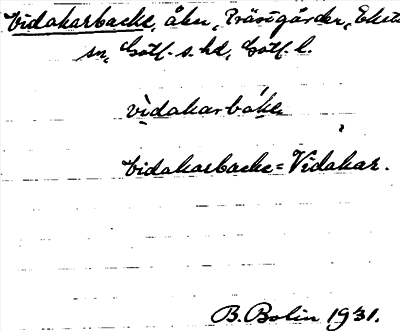 Vidakarbacke, åker, Prästgården, Eksta
sn, Gotl. s. hd, Gotl. l.
vìdakarbák<e
Vidakarbacke = Vidakar.
B. Bolin 1931.